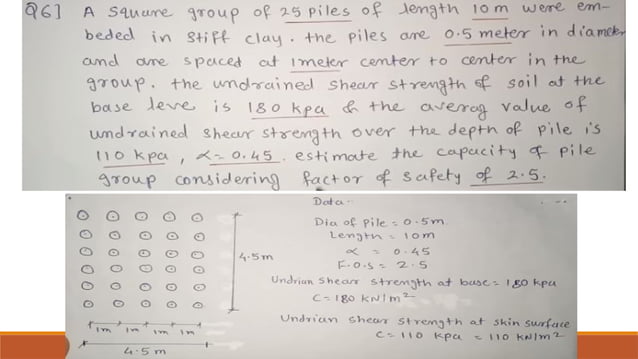 Q6] A Square group of 25 piles of length 10 m were em-
beded in stiff clay. the piles are 0.5 meter in diameter
and are spaced at 1 meter center to center in the
group. the undrained shear strength of soil at the
base leve is 180 kpa & the averag value of
undrained shear strength over the depth of pile is
110 kpa, α = 0.45. estimate the capacity of pile
group considering factor of safety of 2.5.
Data -
Dia of Pile = 0.5m
Length = 10m
α = 0.45
F.O.S = 2.5
Undrian shear strength at base = 180 kpa
C = 180 KN/m²
Undrian shear strength at skin surface
C = 110 kpa = 110 KN/m²
4.5m
1m 1m 1m 1m
4.5 m